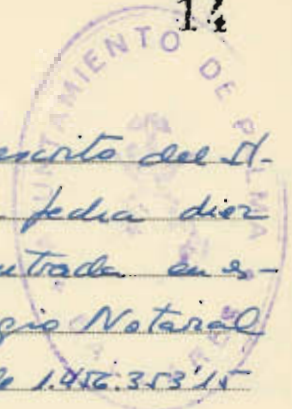 14
AYUNTAMIENTO DE PALMA
escrito del Il-
fecha diez
entrada en es-
gio Notarial
de 1.456.353'15